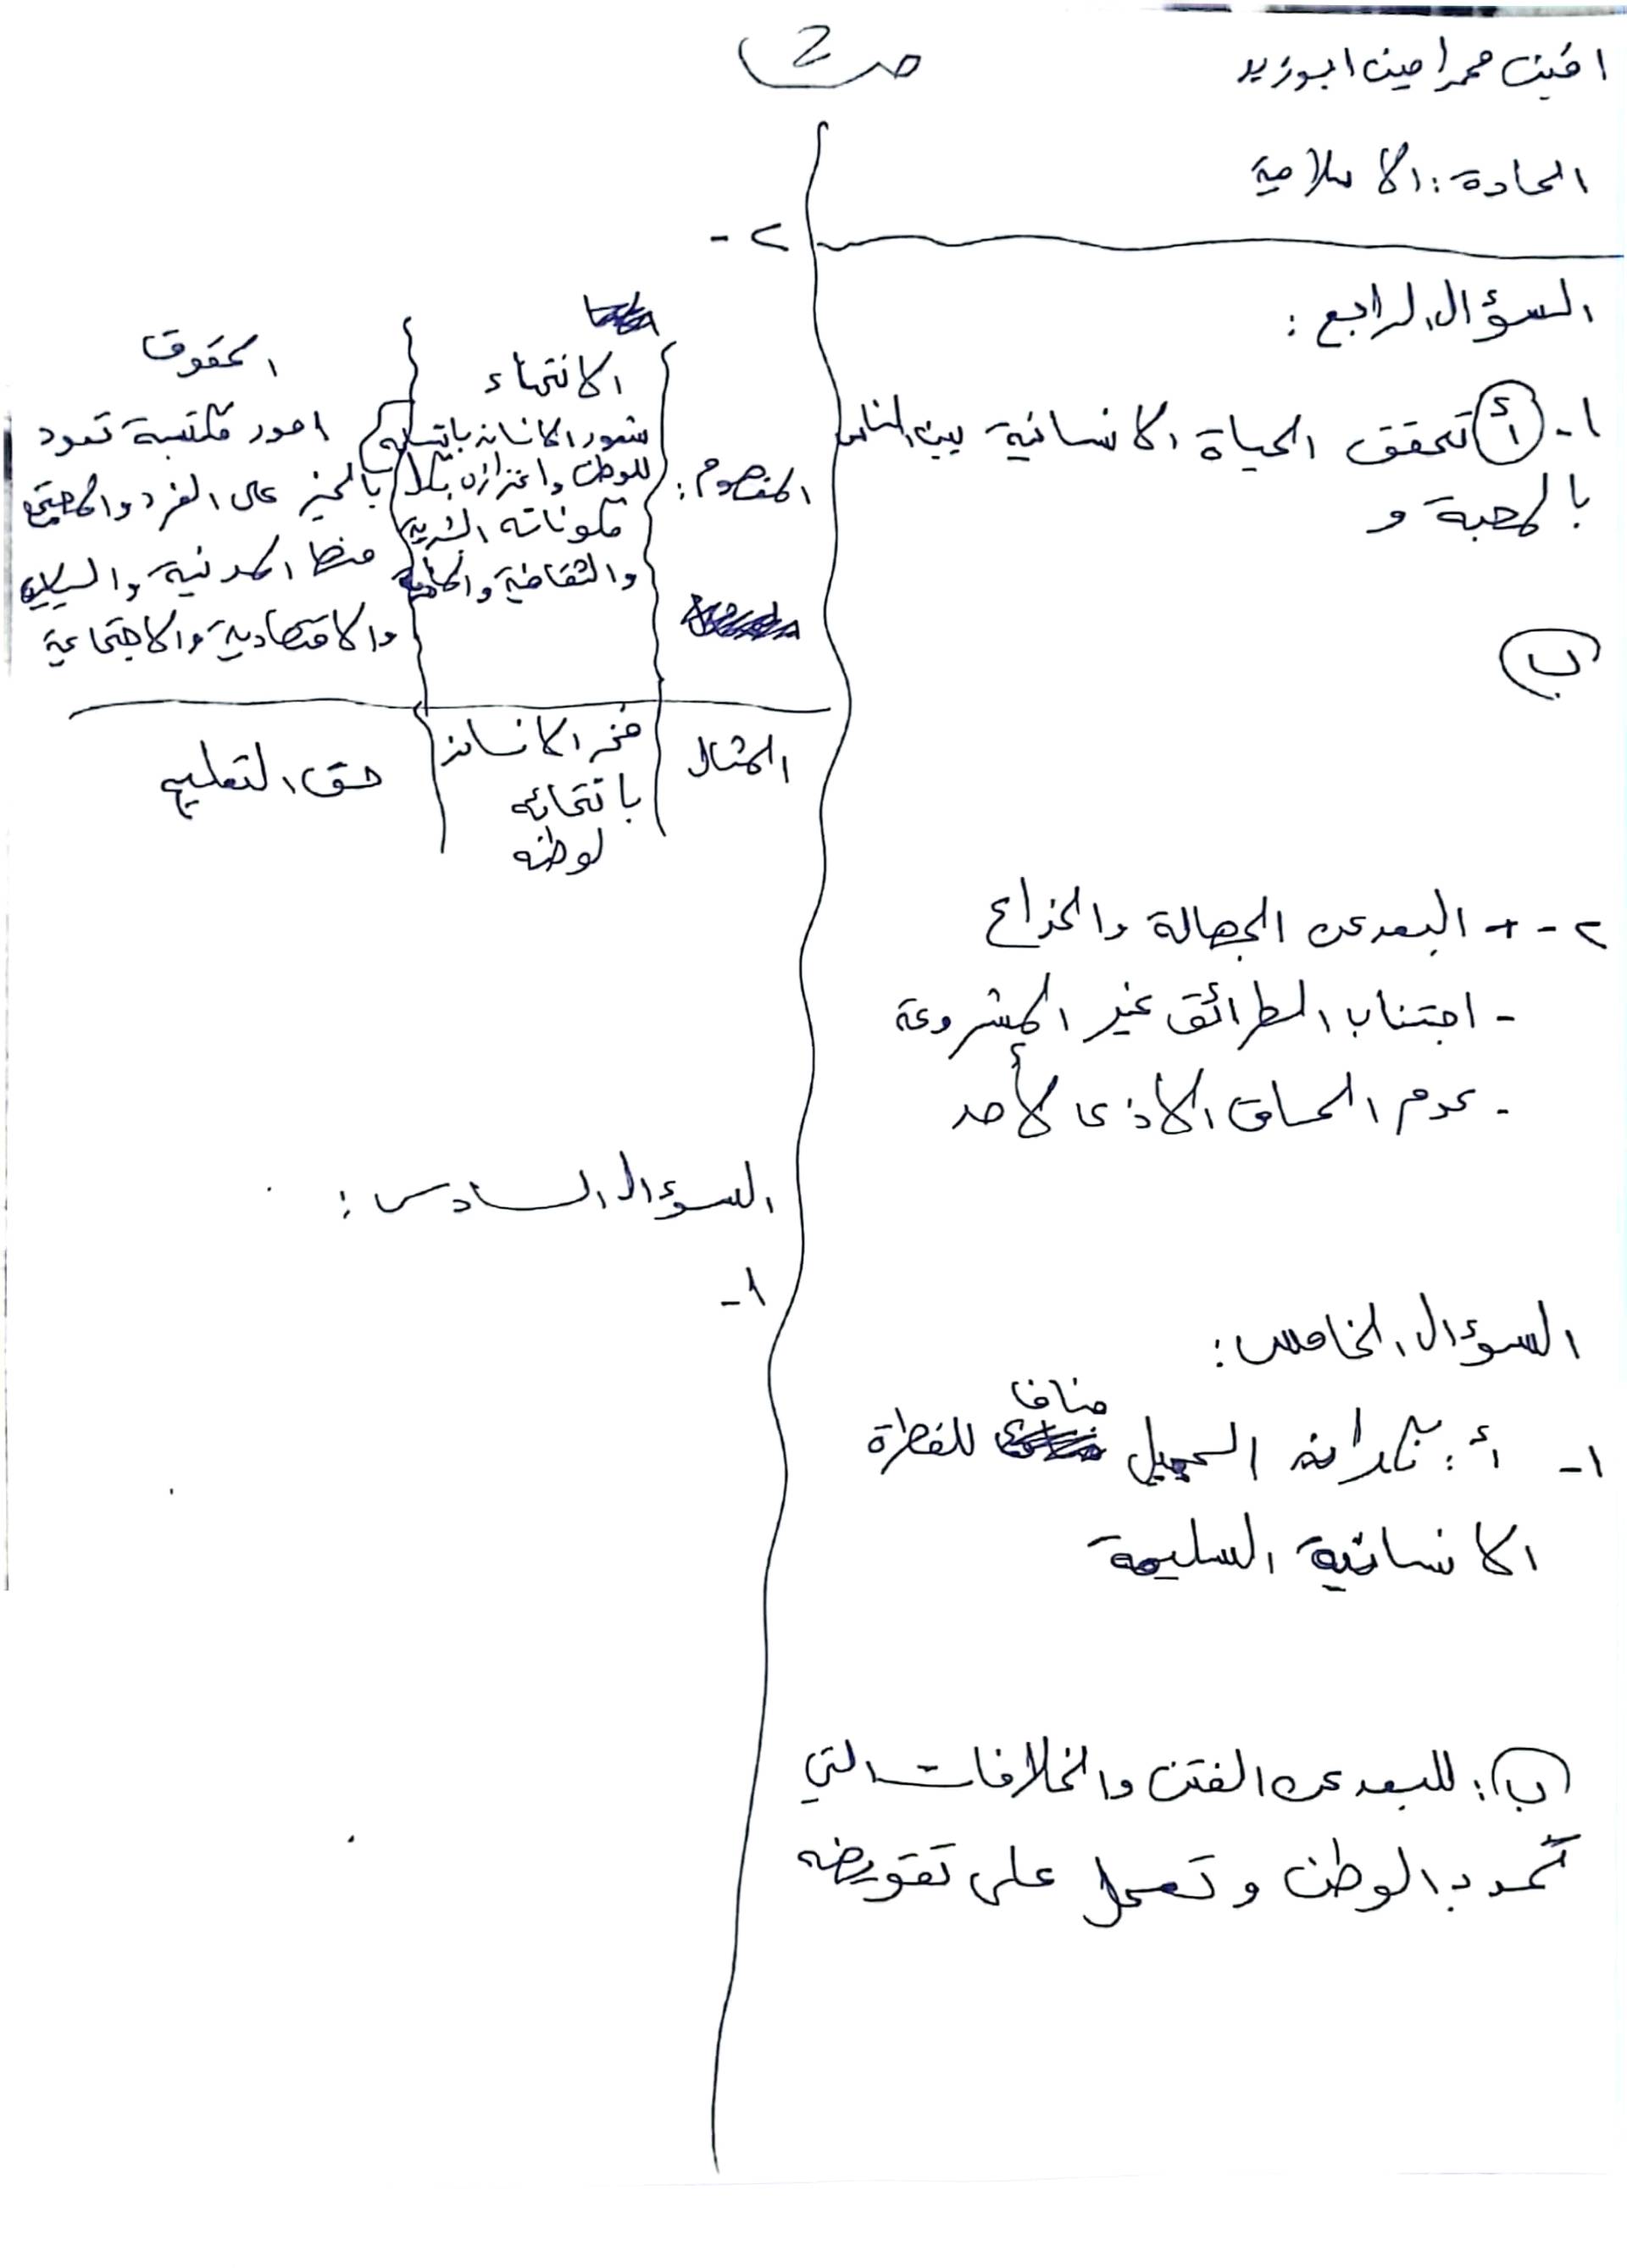 ص 2
محمد امين ابوزيد
المادة: الاسلامية
السؤال الرابع:
١- أ تتحقق الحياة الانسانية بين الناس
بالمحبة و
ب
٢- - البعد عن الجهالة والخداع
- اجتناب الطرائق غير المشروعة
- عدم الحاق الاذى لأحد
السؤال الخامس:
١- أ: نكران الجميل مناف للفطرة
الانسانية السليمة
ب: للبعد عن الفتن والخلافات التي
تهدد الوطن وتعمل على تقويضه
٢-
الانتماء
الحقوق
المفهوم:
شعور الانسان بانتسابه
للوطن واعتزازه بكل
مكوناته البشرية
والثقافية والمادية
امور مكتسبة تعود
بالخير على الفرد والمجتمع
منها المدنية والسياسية
والاقتصادية والاجتماعية
المثال
فخر الانسان
بانتمائه
لوطنه
حق التعليم
السؤال السادس:
١-